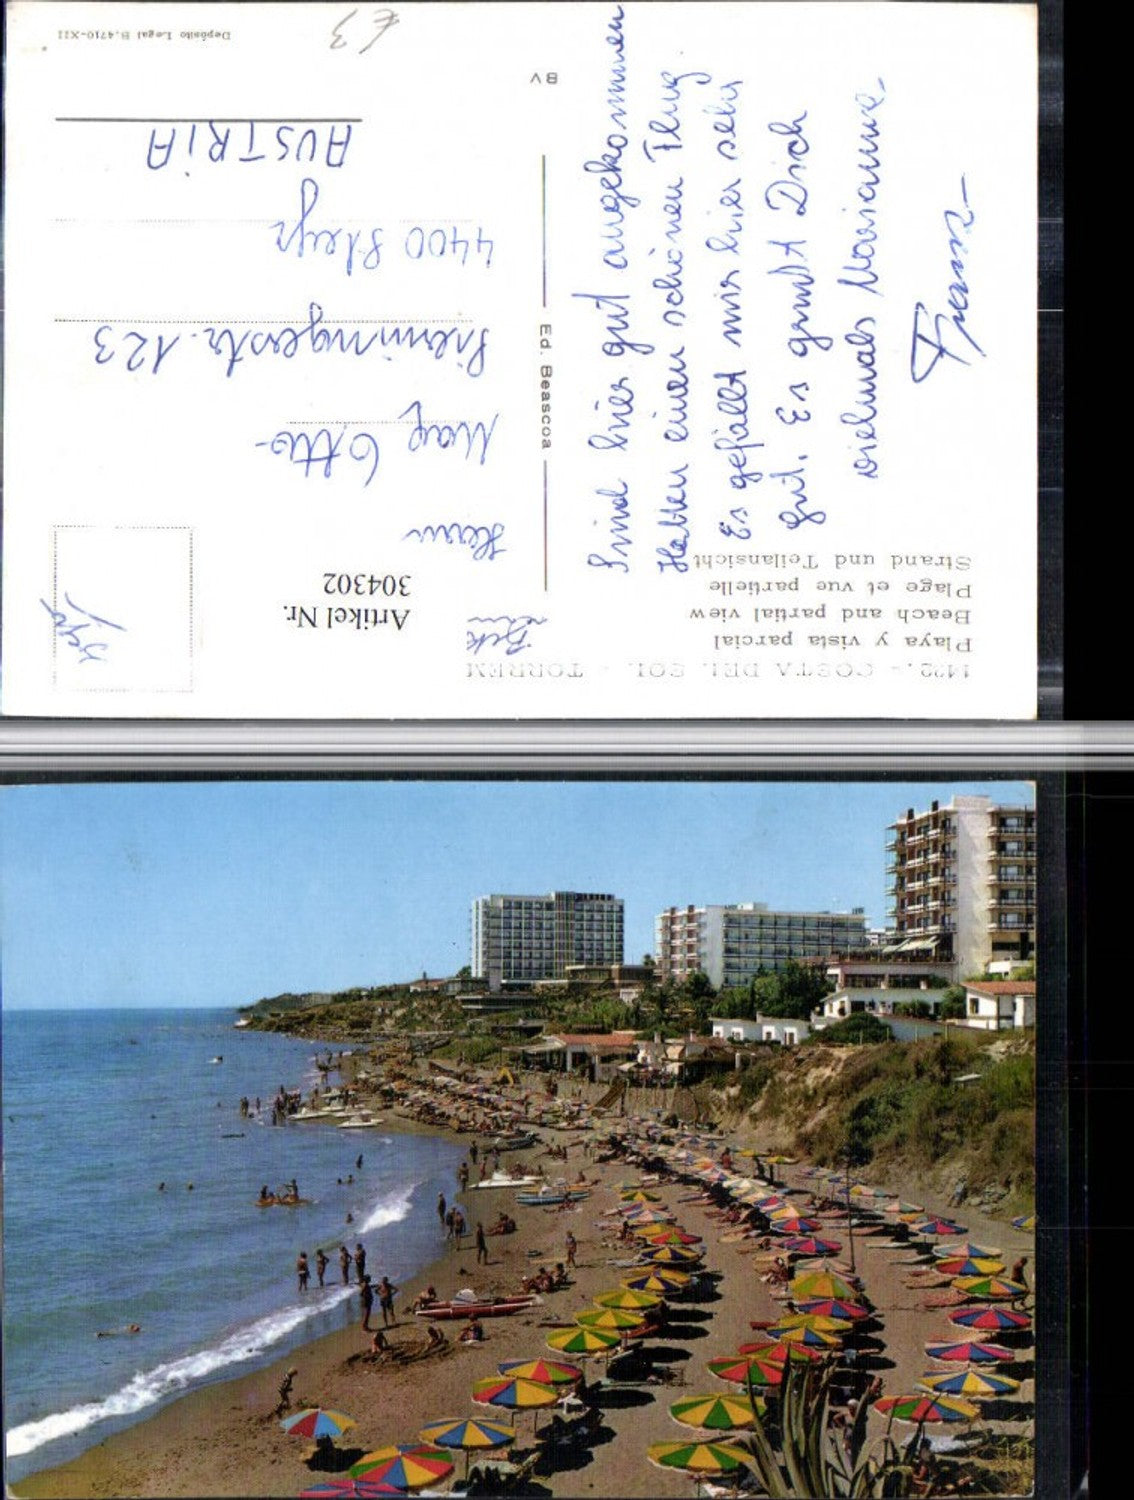 1422. - COSTA DEL SOL. - TORREM
Playa y vista parcial
Beach and partial view
Plage et vue partielle
Strand und Teilansicht
Artikel Nr.
304302
Sind hier gut angekommen
Hatten einen schönen Flug.
Es gefällt mir hier sehr
gut. Es grüßt Dich
vielmals Marianne
Franz
Ed. Beascoa
BV
Herrn
Otto
123
4400 Steyr
AUSTRIA
Depósito Legal B.4710-XII
€3